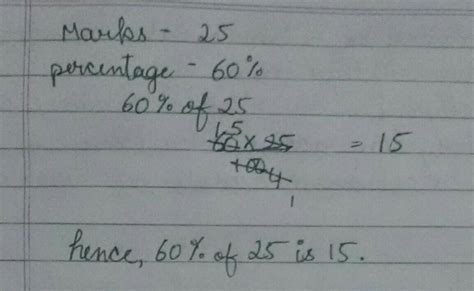 Marks - 25
percentage - 60%
60% of 25
15
60 × 25 = 15
100 4
1
hence, 60% of 25 is 15.